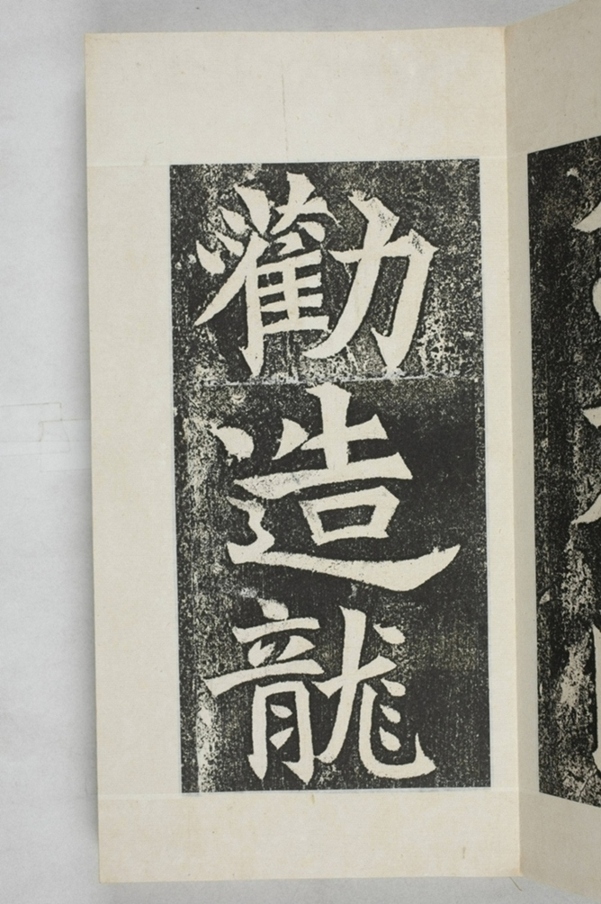 勸造龍